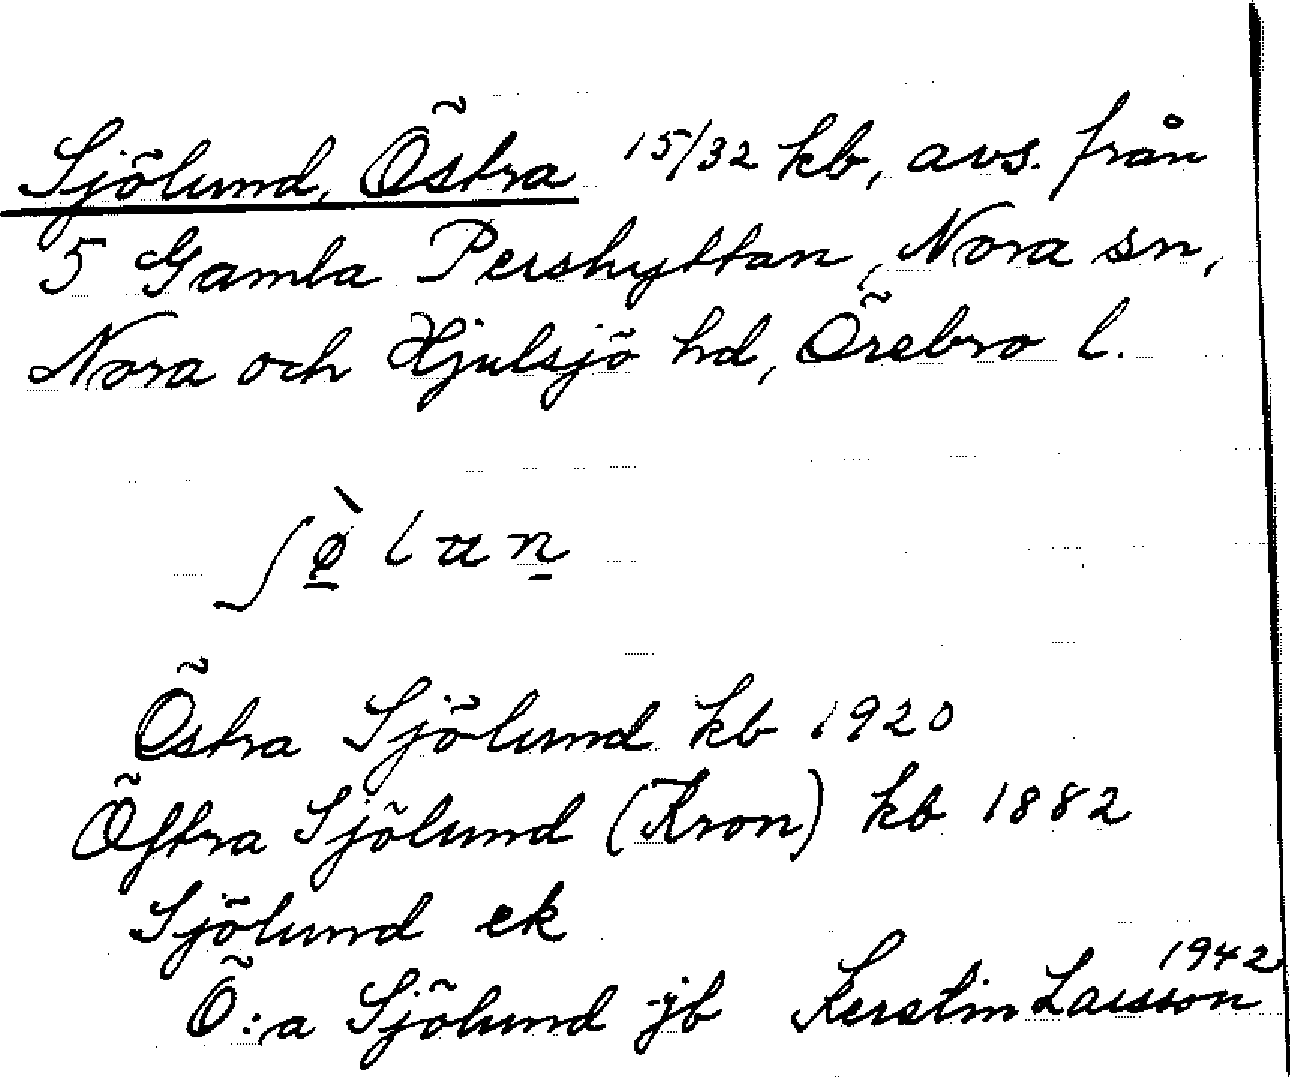 Sjölund, Östra 15/32 kb, avs. från
5 Gamla Pershyttan, Nora sn,
Nora och Hjulsjö hd, Örebro l.
ʃø̠̀lun̠
Östra Sjölund kb 1920
Öſtra Sjölund (Kron) kb 1882
Sjölund ek
Ö:a Sjölund jb Kerstin Larsson 1942